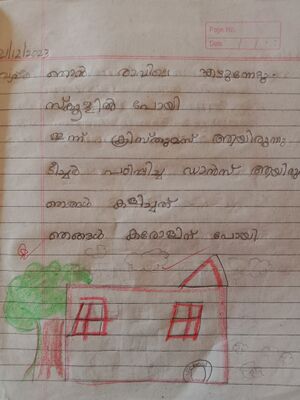 Page No.
Date
21/12/2023
ഞാൻ രാവിലെ എഴുന്നേറ്റു
സ്കൂളിൽ പോയി
ഇന്ന് ക്രിസ്തുമസ് ആയിരുന്നു
ടീച്ചർ പഠിപ്പിച്ച ഡാൻസ് ആയിരു
ഞങ്ങൾ കളിച്ചത്
ഞങ്ങൾ കരോളിന് പോയി